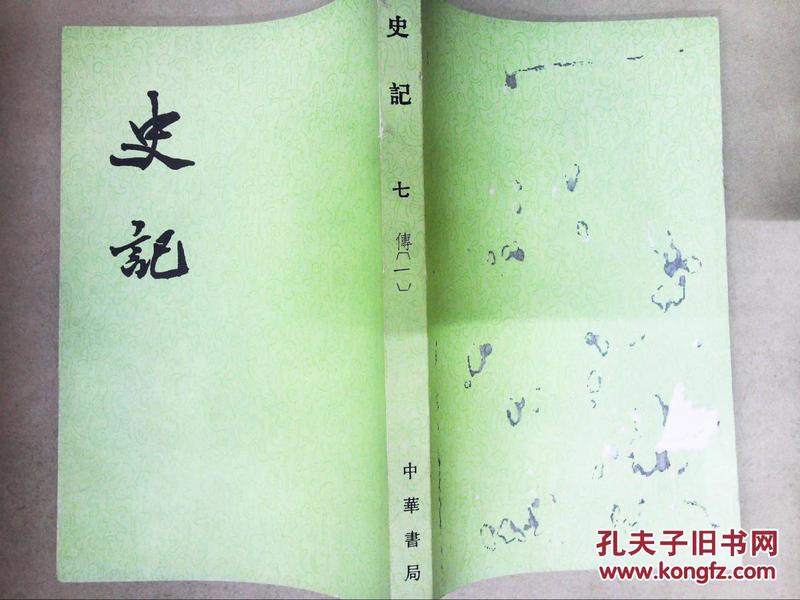 史記
史記 七 傳(一) 中華書局
孔夫子旧书网
www.kongfz.com